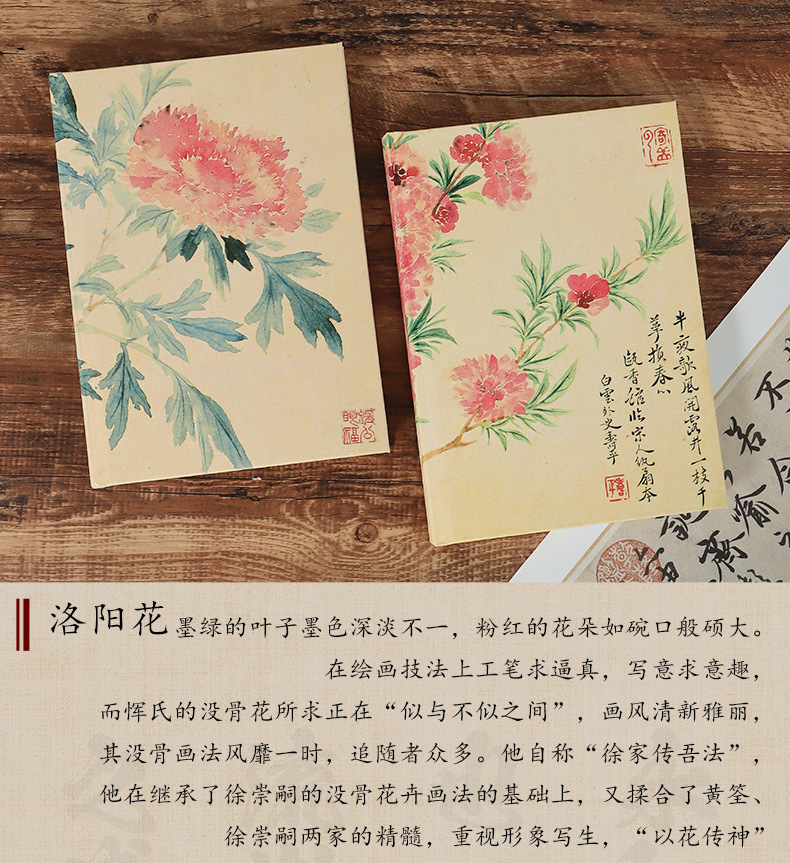 半夜歌風開露井一枝千
萼損春心
甌香館临宋人纨扇本
白雲外史壽平
洛阳花
墨绿的叶子墨色深淡不一，粉红的花朵如碗口般硕大。
在绘画技法上工笔求逼真，写意求意趣，
而恽氏的没骨花所求正在“似与不似之间”，画风清新雅丽，
其没骨画法风靡一时，追随者众多。他自称“徐家传吾法”，
他在继承了徐崇嗣的没骨花卉画法的基础上，又揉合了黄筌、
徐崇嗣两家的精髓，重视形象写生，“以花传神”